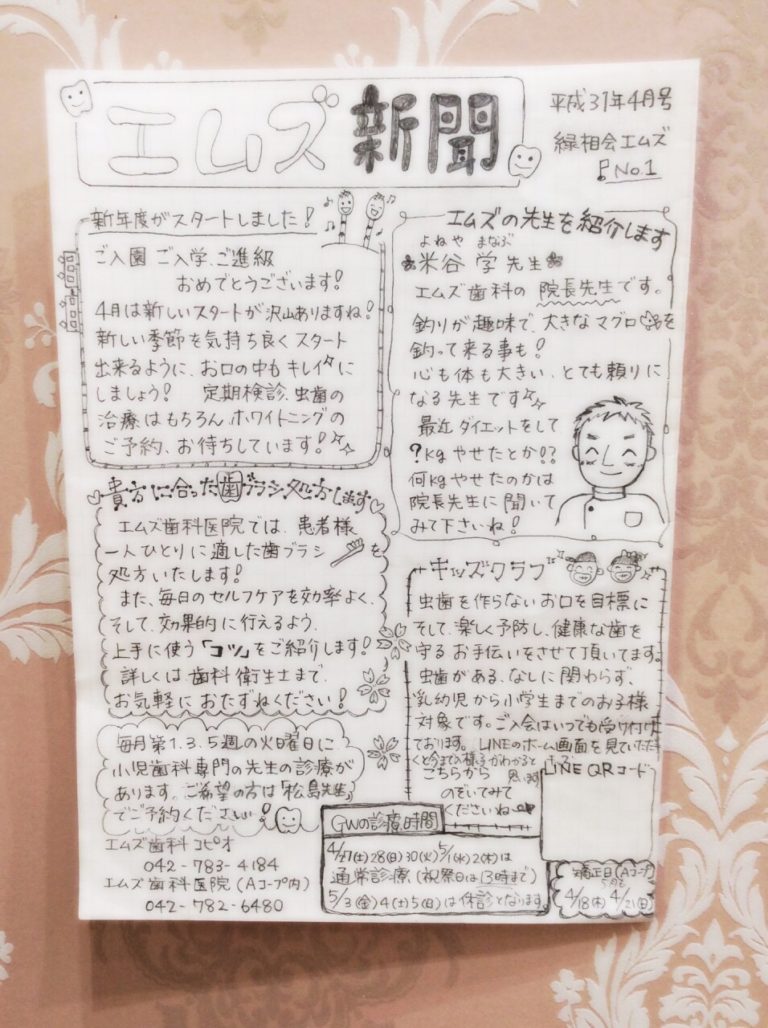 エムズ新聞
平成31年4月号
緑相会エムズ
No.1
新年度がスタートしました!
ご入園 ご入学、ご進級
おめでとうございます!
4月は新しいスタートが沢山ありますね!
新しい季節を気持ち良くスタート
出来るように、お口の中もキレイに
しましょう! 定期検診、虫歯の
治療はもちろん、ホワイトニングの
ご予約、お待ちしています!
エムズの先生を紹介します
よねや まなぶ
米谷 学 先生
エムズ歯科の 院長先生です。
釣りが趣味で、大きなマグロを
釣って来る事も!
心も体も大きい、とても頼りに
なる先生です
最近ダイエットをして
?kgやせたとか!?
何kgやせたのかは
院長先生に聞いて
みて下さいね!
貴方に合った歯ブラシ処方します
エムズ歯科医院では、患者様
一人ひとりに適した歯ブラシを
処方いたします!
また、毎日のセルフケアを効率よく、
そして、効果的に行えるよう、
上手に使う「コツ」をご紹介します!
詳しくは歯科衛生士まで、
お気軽におたずねください!
キッズクラブ
虫歯を作らないお口を目標に
そして、楽しく予防し、健康な歯を
守るお手伝いをさせて頂いてます。
虫歯がある、なしに関わらず、
乳幼児から小学生までのお子様
対象です。ご入会はいつでも受け付け
ております。LINEのホーム画面を見ていただ
くと今までの様子がわかると
思います
こちらから
のぞいてみて
くださいね
LINE QRコード
毎月第1.3.5週の火曜日に
小児歯科専門の先生の診療が
あります。ご希望の方は「松島先生」
でご予約ください!
エムズ歯科 コピオ
042-783-4184
エムズ歯科医院(Aコープ内)
042-782-6480
GWの診療時間
4/27(土)28(日)30(火)5/1(水)2(木)は
通常診療(祝祭日は13時まで)
5/3(金)4(土)5(日)は休診となります。
矯正日(Aコープ)
4/18(木) 4/21(日)